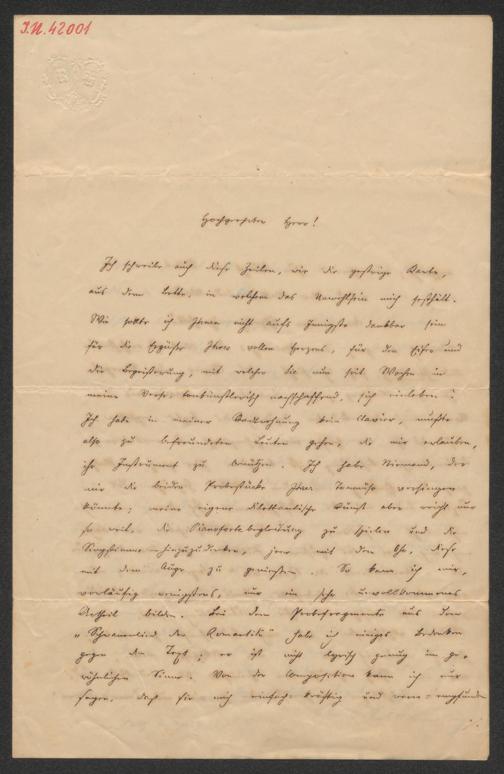 I.N. 42001
Hochgeehrter Herr!
Ich schreibe auch diese Zeilen, wie die gestrige Karte,
aus dem Bette, in welchem das Unwohlsein mich festhält.
Wie sollte ich Ihnen nicht aufs Innigste dankbar sein
für die Ergüsse Ihres vollen Herzens, für den Eifer und
die Begeisterung, mit welcher Sie nun seit Wochen in
meine Verse, tonkünstlerisch nachschaffend, sich einleben!
Ich habe in meiner Wohnung kein Clavier, müßte
also zu befreundeten Leuten gehen, die mir erlauben,
ihr Instrument zu benützen. Ich habe Niemand, der
mir die beiden Probestücke Ihrer vorsingen
könnte; meine eigene dilettantische Kunst aber reicht nur
so weit, die Pianofortebegleitung zu spielen und die
Singstimme hinzuzudenken, jene mit dem Ohr, diese
mit dem Auge zu genießen. So kann ich mir,
vorläufig wenigstens, nur ein sehr unvollkommenes
Urtheil bilden. Bei dem Probefragmente aus dem
"Schwanenlied der Romantik" habe ich einiges Bedenken
gegen den Text; er ist nicht lyrisch genug im ge-
wöhnlichen Sinne. Von der Composition kann ich nur
sagen, daß sie mich einfach kräftig und empfunden